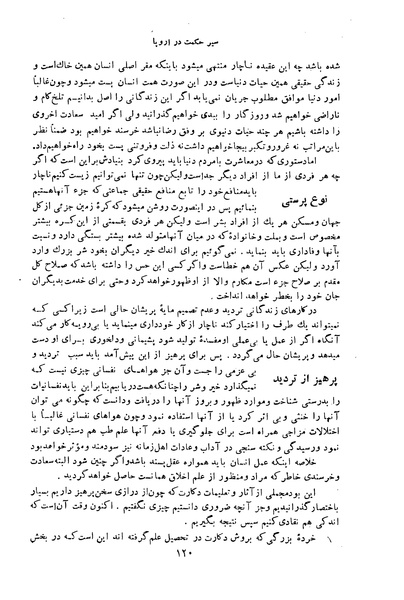 سیر حکمت در اروپا
شده باشد چه این عقیده ناچار منتهی میشود باینکه مقر اصلی انسان همین خاك است و
زندگی حقیقی همین حیات دنیاست و در این صورت همت انسان پست میشود و چون غالباً
امور دنیا موافق مطلوب جریان نمی‌یابد اگر این زندگانی را اصل بدانیم تلخ‌کام و
ناراضی خواهیم شد و روزگار را ببدی خواهیم گذرانید ولی اگر امید سعادت اخروی
را داشته باشیم هر چند حیات دنیوی بر وفق رضا نباشد خرسند خواهیم بود ضمناً نظر
باین مراتب نه غرور و تکبر بیجا خواهیم داشت نه ذلت و فروتنی پست بخود راه خواهیم داد.
اما دستوری که در معاشرت با مردم دنیا باید پیروی کرد بنیادش بر این است که اگر
چه هر فردی از ما از افراد دیگر جداست ولیکن چون تنها نمی‌توانیم زیست کنیم ناچار
باید منافع خود را تابع منافع حقیقی جماعتی که جزء آنها هستیم
نوع پرستی
بنمائیم پس در اینصورت روشن میشود که کرۀ زمین جزئی از کل
جهان و مسکن هر یك از افراد بشر است ولیکن هر فردی بقسمتی از این کره بیشتر
مخصوص است و بملت و خانواده که در میان آنها متولد شده بیشتر بستگی دارد و نسبت
بآنها وفاداری باید بنماید. نمی‌گوئیم برای اندك خیر دیگران بخود شر بزرك وارد
آورد ولیکن عکس آن هم خطاست و اگر کسی این حس را داشته باشد که صلاح کل
مقدم بر صلاح جزء است مکارم والا از او ظهور خواهد کرد و حتی برای خدمت بدیگران
جان خود را بخطر خواهد انداخت.
در کارهای زندگانی تردید و عدم تصمیم مایۀ پریشان حالی است زیرا کسی که
نمیتواند یك طرف را اختیار کند ناچار از کار خودداری مینماید یا بی‌رویه کار می‌کند
آنگاه اگر از عمل یا بی عملی او مفسدۀ تولید شود پشیمانی و دلخوری برای او دست
میدهد و پریشان حال می‌گردد. پس برای پرهیز از این پیش‌آمد باید سبب تردید و
بی عزمی را جست و آن جز هواهای نفسانی چیزی نیست که
پرهیز از تردید
نمیگذارد خیر و شر را چنانکه هست دریابیم بنابراین باید نفسانیات
را بدرستی شناخت و موارد ظهور و بروز آنها را دریافت و دانست که چگونه می توان
آنها را خنثی و بی اثر کرد یا از آنها استفاده نمود و چون هواهای نفسانی غالباً با
اختلالات مزاجی همراه است برای جلوگیری یا دفع آنها علم طب هم دستیاری تواند
نمود و رسیدگی و نکته سنجی در آداب و عادات اهل زمانه نیز سودمند و مؤثر خواهد بود
خلاصه اینکه عمل انسان باید همواره عقل پسند باشد و اگر چنین شود البته سعادت
و خرسندی خاطر که مراد و منظور از علم اخلاق همانست حاصل خواهد گردید.
این بود مجملی از آثار و تعلیمات دکارت که چون از درازی سخن پرهیز داریم بسیار
باختصار گذرانیدیم و جز آنچه ضروری دانستیم چیزی نگفتیم. اکنون وقت آن است که
اندکی هم نقادی کنیم سپس نتیجه بگیریم.
خردۀ بزرگی که بروش دکارت در تحصیل علم گرفته اند این است که در بخش
۱۲۰